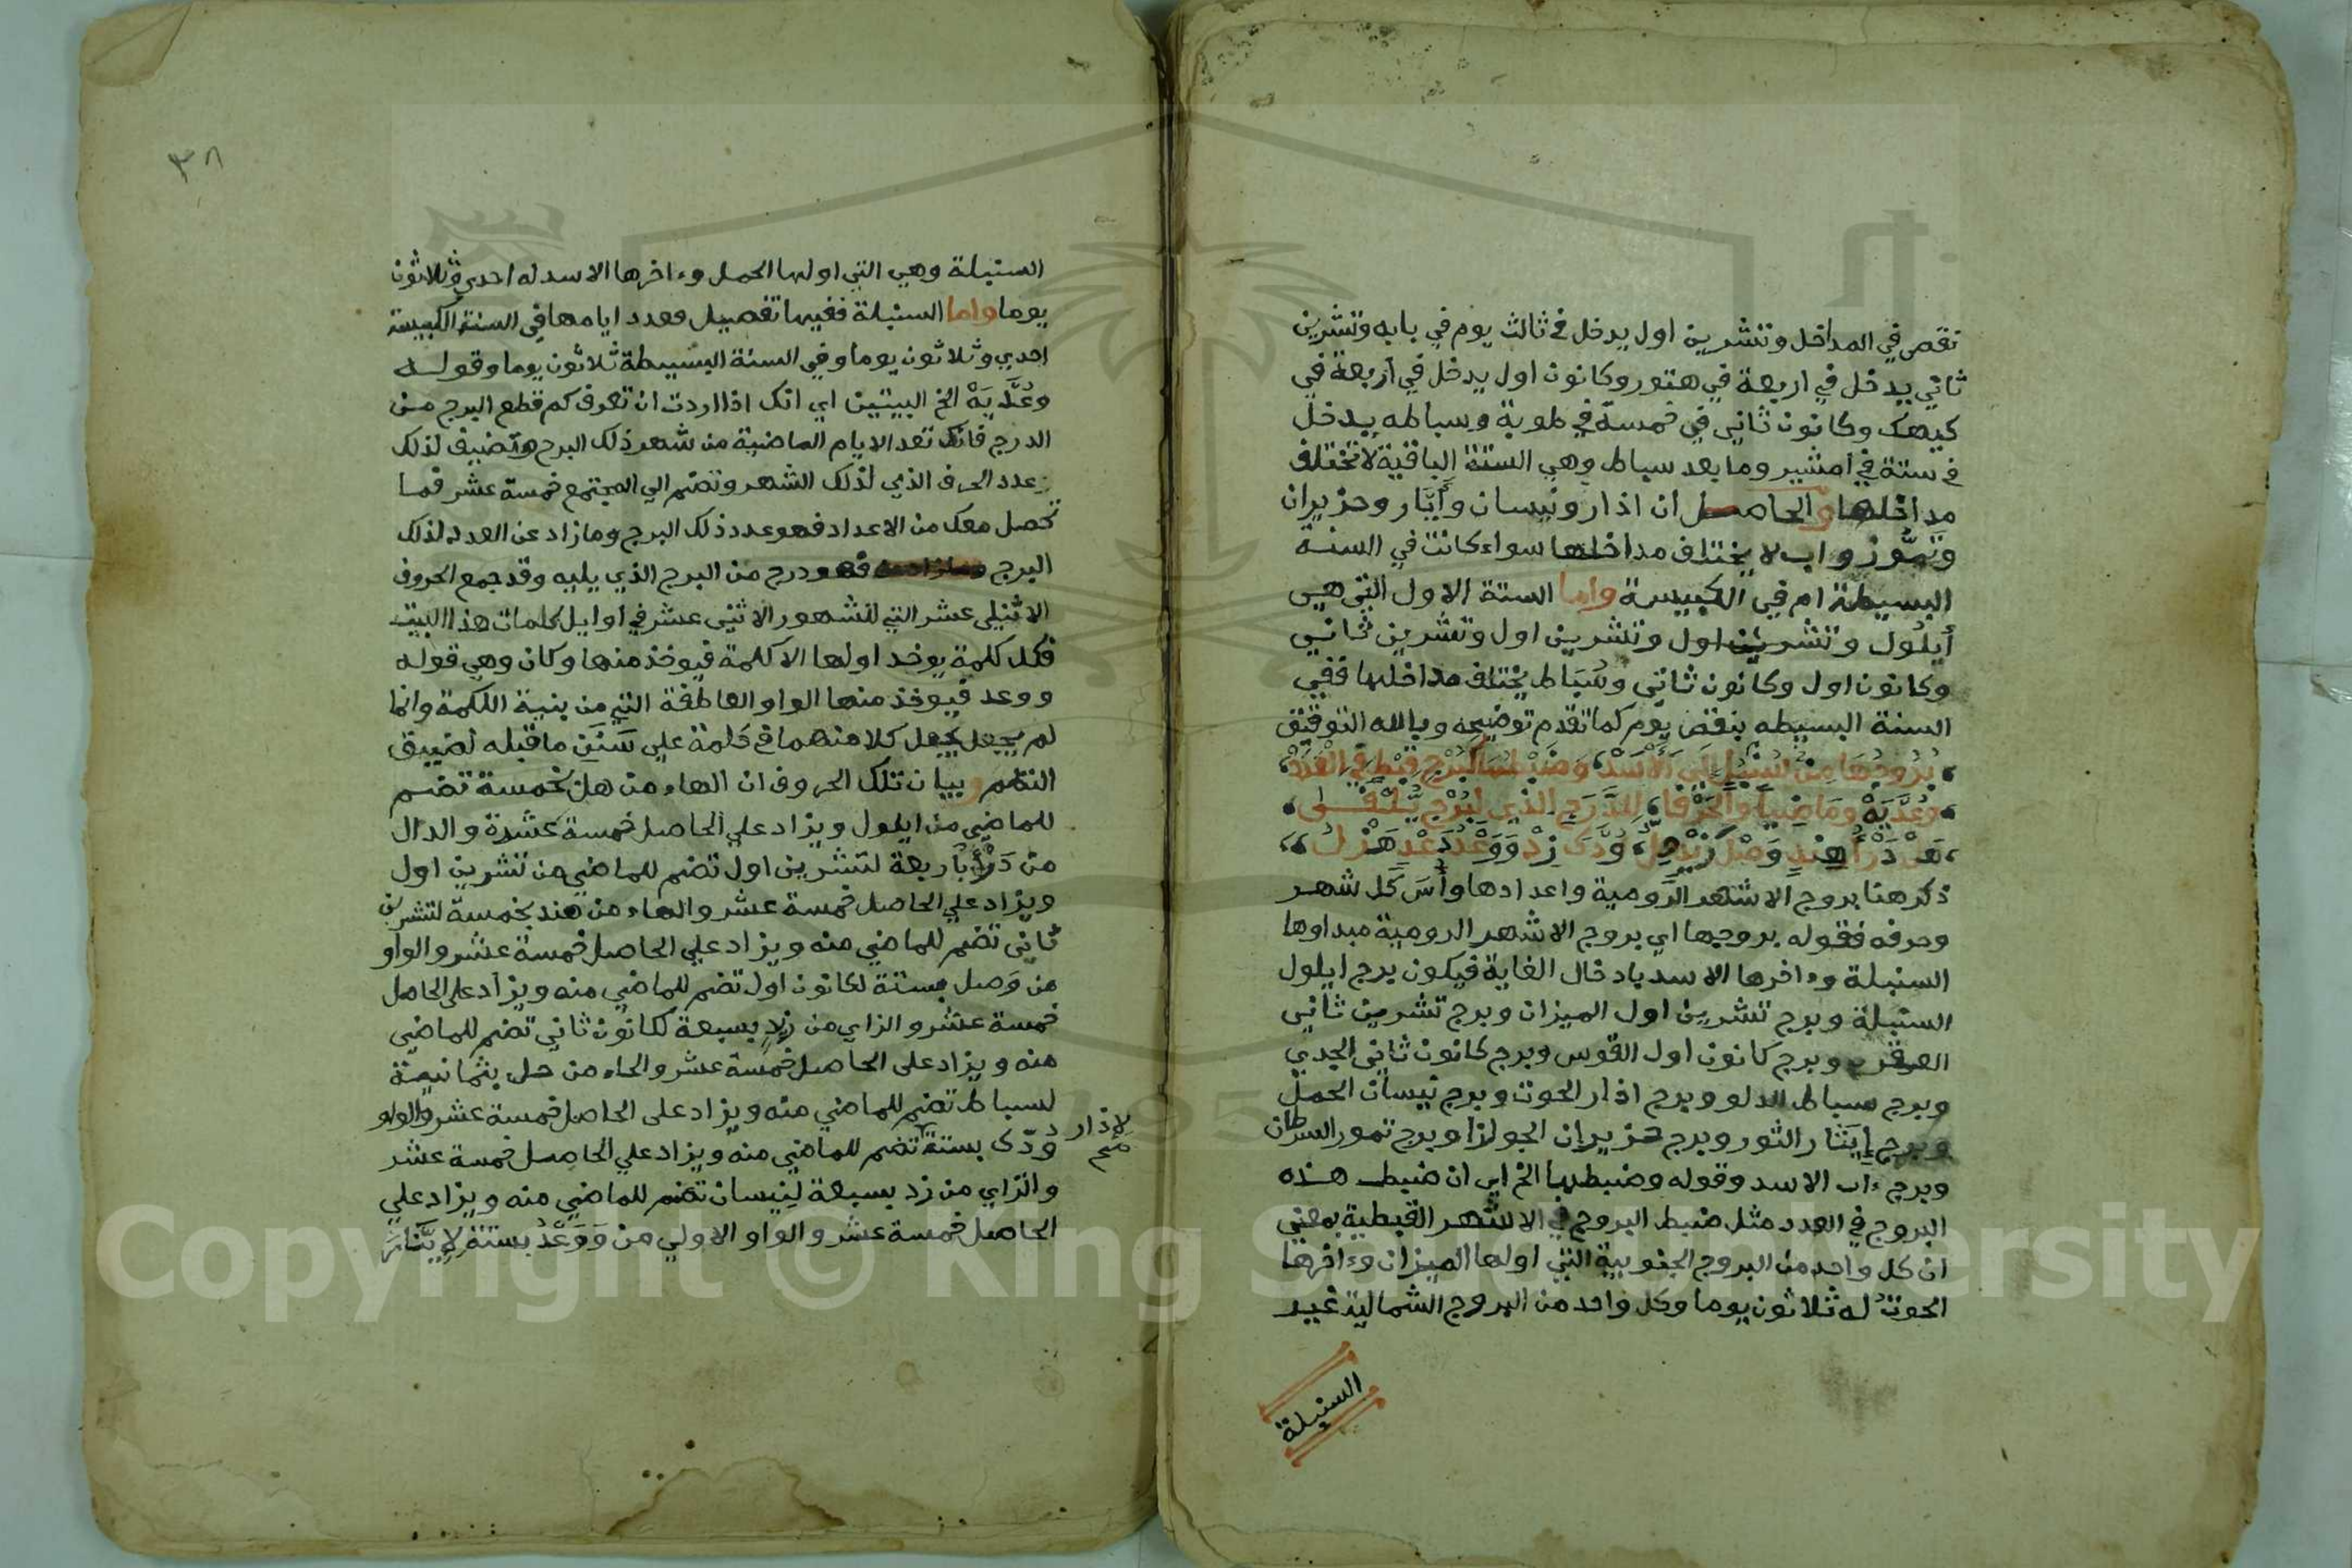 نقص في المداخل وتشرين اول يدخل في ثالث يوم في بابه وتشرين
ثاني يدخل في اربعة في هتور وكانون اول يدخل في اربعة في
كيهك وكانون ثاني في خمسة في طوبة وسباط يدخل
في ستة في امشير وما بعد سباط وهي الستة الباقية لا تختلف
مداخلها والحاصل ان اذار ونيسان وأيَّار وحزيران
وتمّوز واب لا يختلف مداخلها سواء كانت في السنة
البسيطة ام في الكبيسة واما الستة الاول التي هي
أيلول وتشرين اول وتشرين اول وتشرين ثاني
وكانون اول وكانون ثاني وسُبَاط يختلف مداخلها ففي
السنة البسيطه ينقص يوم كما تقدم توضيحه وبالله التوفيق
بُرُوجُهَا مِنْ سُنْبُلٍ اِلَى الْأَسَدْ، وَضَبْطُهَا كَبُرْجِ قِبْطٍ فِي الْعَدَدْ
وَعُدَّيَةْ وَمَاضِيًا وَالْحَرْفَا، لِلدَّرَجِ الذي لِبُرْجٍ يُلْفَى
هَلْ دَرْأُ هِنْدٍ وَصْلُ زَيْدٍ حِلُّ، وُدَّكَ زِدْ وَوَعْدُ دَعْدٍ هَزْلُ
ذكر هنا بروج الاشهر الرومية واعدادها وأسَ كل شهر
وحرفه فقوله بروجها اي بروج الاشهر الرومية مبداوها
السنبلة وءاخرها الاسد بادخال الغاية فيكون برج ايلول
السنبلة وبرج تشرين اول الميزان وبرج تشرين ثاني
العقرب وبرج كانون اول القوس وبرج كانون ثاني الجدي
وبرج سباط الدلو وبرج اذار الحوت وبرج نيسان الحمل
وبرج إيَّار الثور وبرج حزيران الجوزا وبرج تموز السرطان
وبرج ءاب الاسد وقوله وضبطها الخ اي ان ضبط هذه
البروج في العدد مثل ضبط البروج في الاشهر القبطية بمعني
ان كل واحد من البروج الجنوبية التي اولها الميزان وءاخرها
الحوت له ثلاثون يوما وكل واحد من البروج الشمالية غير
السنبلة
٣٨
السنبلة وهي التي اولها الحمل وءاخرها الاسد له احدي وثلاثون
يوما واما السنبلة ففيها تفصيل فعدد ايامها في السنة الكبيسة
احدي وثلاثون يوما وفي السنة البسيطة ثلاثون يوما وقوله
وعُدَّيَةْ الخ البيتين اي انك اذا اردت ان تعرف كم قطع البرج من
الدرج فانك تعد الايام الماضية من شهر ذلك البرج وتضيف لذلك
عدد الحرف الذي لذلك الشهر وتضم الي المجتمع خمسة عشر فما
تحصل معك من الاعداد فهو عدد ذلك البرج وما زاد عن العدد لذلك
البرج فهو درج من البرج الذي يليه وقد جمع الحروف
الاثني عشر التي للشهور الاثني عشر في اوايل كلمات هذا البيت
فكل كلمة يوخذ اولها الا كلمة فيوخذ منها وكان وهي قوله
ووعد فيوخذ منها الواو العاطفة التي من بنية الكلمة وانما
لم يجعل كلا منهما في كلمة علي سَنَنِ ما قبله لضيق
النظم وبيان تلك الحروف ان الهاء من هل بخمسة تضم
للماضي من ايلول ويزاد علي الحاصل خمسة عشرة والدال
من دَرْأُ باربعة لتشرين اول تضم للماضي من تشرين اول
ويزاد علي الحاصل خمسة عشر والهاء من هند بخمسة لتشرين
ثاني تضم للماضي منه ويزاد علي الحاصل خمسة عشر والواو
من وَصل بستة لكانون اول تضم للماضي منه ويزاد علي الحاصل
خمسة عشر والزاي من زيد بسبعة لكانون ثاني تضم للماضي
منه ويزاد على الحاصل خمسة عشر والحاء من حل بثمانية
لسباط تضم للماضي منه ويزاد على الحاصل خمسة عشر والواو
وُدّك بستة تضم للماضي منه ويزاد علي الحاصل خمسة عشر
والزاي من زد بسبعة لِنِيسان تضم للماضي منه ويزاد علي
الحاصل خمسة عشر والواو الاولي من وَوَعْدُ بستة لإيَّار
لاذار
صح
Copyright © King Saud University